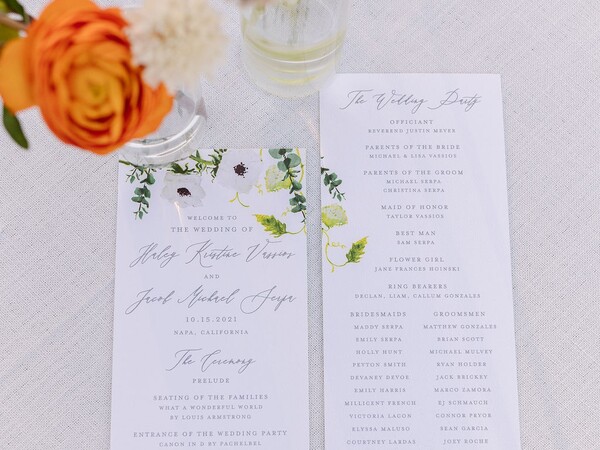 WELCOME TO
THE WEDDING OF
Haley Kristine Vassios
AND
Jacob Michael Serpa
10.15.2021
NAPA, CALIFORNIA
The Ceremony
PRELUDE
SEATING OF THE FAMILIES
WHAT A WONDERFUL WORLD
BY LOUIS ARMSTRONG
ENTRANCE OF THE WEDDING PARTY
CANON IN D BY PACHELBEL
The Wedding Party
OFFICIANT
REVEREND JUSTIN MEYER
PARENTS OF THE BRIDE
MICHAEL & LISA VASSIOS
PARENTS OF THE GROOM
MICHAEL SERPA
CHRISTINA SERPA
MAID OF HONOR
TAYLOR VASSIOS
BEST MAN
SAM SERPA
FLOWER GIRL
JANE FRANCES HOINSKI
RING BEARERS
DECLAN, LIAM, CALLUM GONZALES
BRIDESMAIDS
MADDY SERPA
EMILY SERPA
HOLLY HUNT
PEYTON SMITH
DEVANEY DEVOE
EMILY HARRIS
MILLICENT FRENCH
VICTORIA LACON
ALYSSA MALUSO
COURTNEY LARDAS
GROOMSMEN
MATTHEW GONZALES
BRIAN SCOTT
MICHAEL MULVEY
RYAN HOLDER
JACK BRICKEY
MARCO ZAMORA
EJ SCHMAUCH
CONNOR PRYOR
SEAN GARCIA
JOEY ROCHE